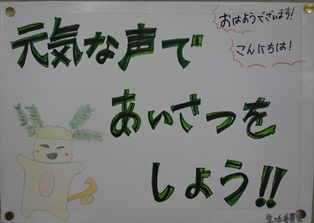 元気な声で
おはようございます!
こんにちは!
あいさつを
しょう!!
生活委員会